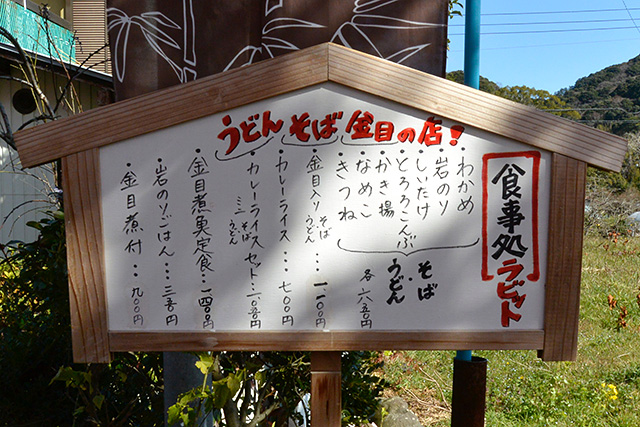 うどん そば 金目の店!
食事処
ラビット
・わかめ
・岩のソ
・しいたけ
・とろろこんぶ
・かき揚
・なめこ
・きつね
そば
うどん
各六五〇円
・金目入り そば うどん … 一一〇〇円
・カレーライス … 七〇〇円
・カレーライスセット … 一〇五〇円
ミニ そば うどん
・金目煮魚定食 … 一四〇〇円
・岩のソごはん … 三五〇円
・金目煮付 … 九〇〇円